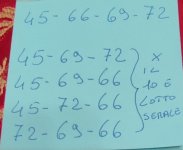 45-66-69-72
45-69-72
45-69-66
45-72-66
72-69-66
X
IL
10 E
LOTTO
SERALE